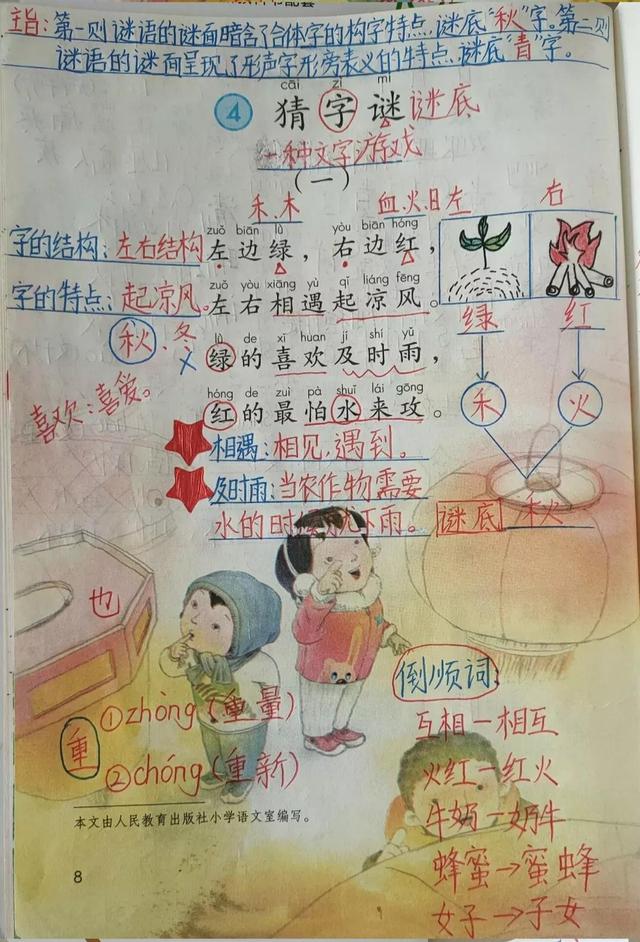 主旨:第一则谜语的谜面暗含了合体字的构字特点,谜底"秋"字。第二则
谜语的谜面呈现了形声字形旁表义的特点,谜底"青"字。
cāi zì mí
4 猜字谜 谜底
一种文字游戏
(一)
禾、木 血、火、日、左 右
zuǒ biān lǜ yòu biān hóng
字的结构:左右结构 左边绿,右边红,
zuǒ yòu xiāng yù qǐ liáng fēng
字的特点:起凉风。左右相遇起凉风。
绿 红
秋、冬
lǜ de xǐ huan jí shí yǔ
绿的喜欢及时雨,
喜欢:喜爱。
hóng de zuì pà shuǐ lái gōng
红的最怕水来攻。
禾 火
相遇:相见,遇到。
及时雨:当农作物需要
水的时候就下雨。
谜底 秋
也
重
①zhòng(重量)
②chóng(重新)
倒顺词:
互相一相互
火红一红火
牛奶一奶牛
蜂蜜→蜜蜂
女子→子女
本文由人民教育出版社小学语文室编写。
8